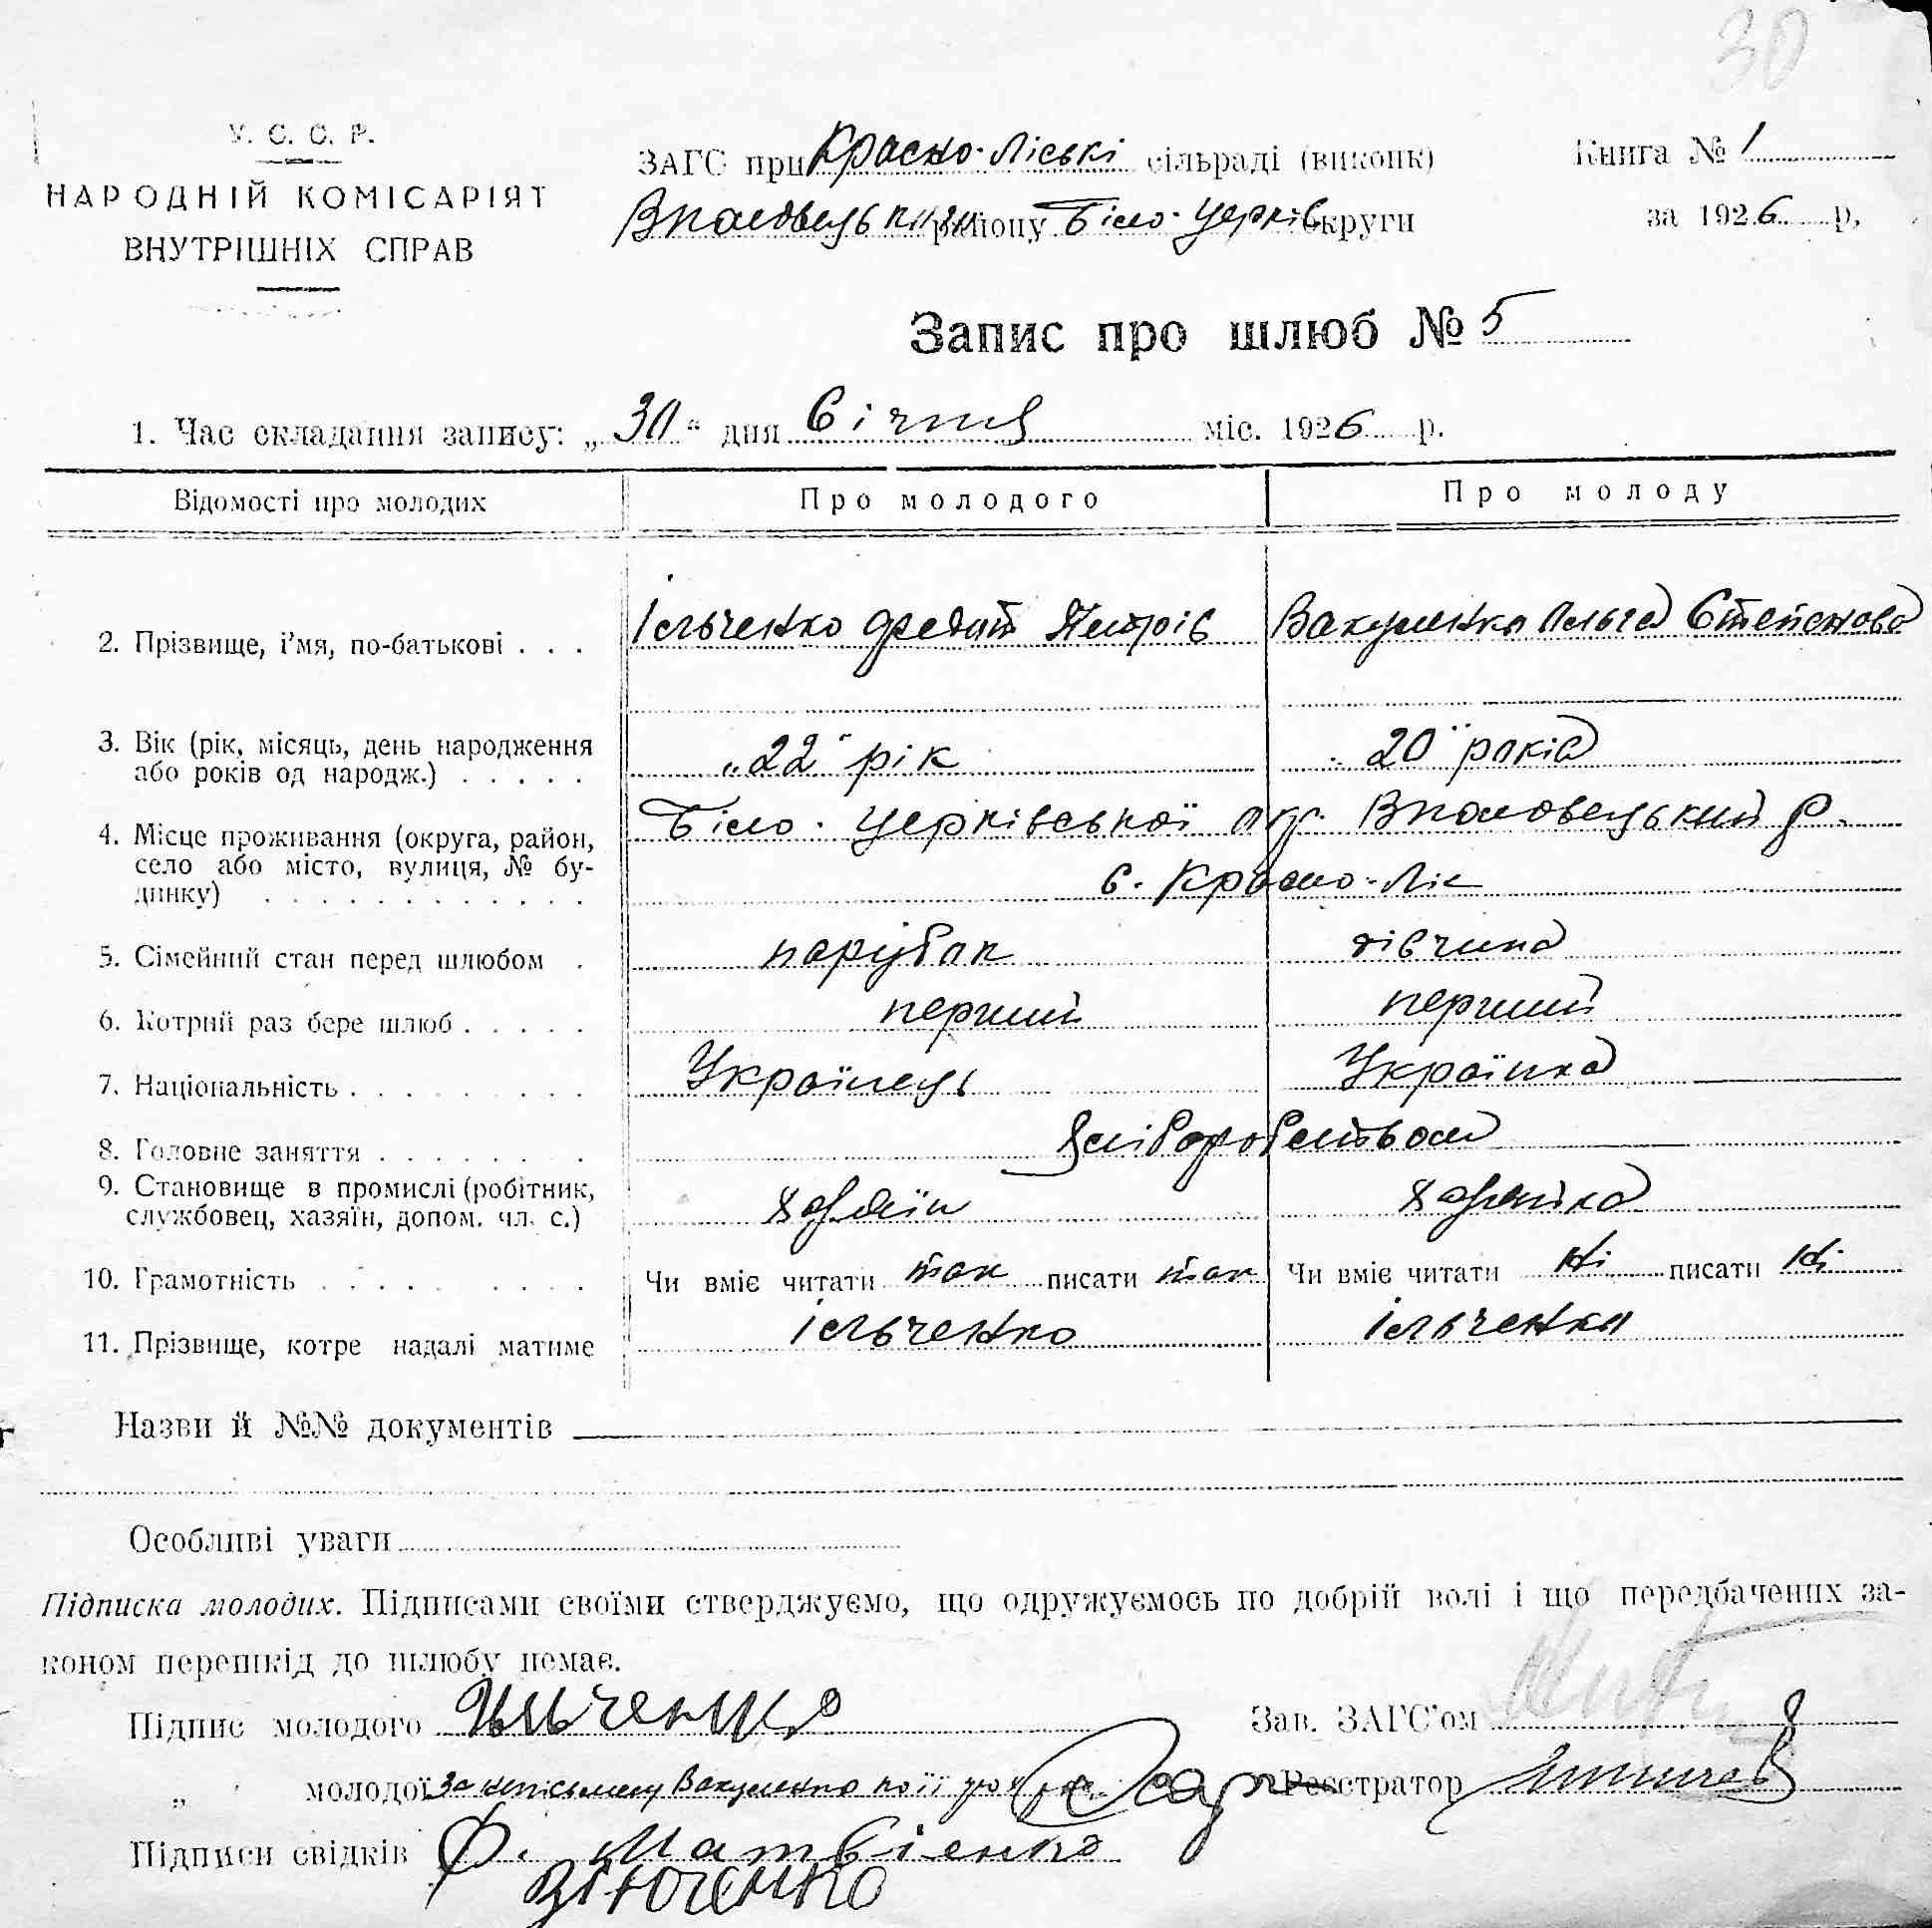 30
У. С. С. Р.
НАРОДНІЙ КОМІСАРІЯТ
ВНУТРІШНІХ СПРАВ
ЗАГС при Красно-Ліські сільраді (виконк)
району Біло-Церків округи
Книга № 1
за 1926 р,
Запис про шлюб № 5
1. Час складання запису: „30“ дня Січня міс. 1926 р.
Відомості про молодих Про молодого Про молоду
2. Прізвище, і’мя, по-батькові . . . Ільченко Федот Петрів Вакуленко Ольга Степанова
3. Вік (рік, місяць, день народження
або років од народж.) . . . . . „22“ рік „20“ років
4. Місце проживання (округа, район,
село або місто, вулиця, № бу-
динку) . . . . . . . . . . . .
Біло-Церківської окр. р.
с. Красно-Ліс
5. Сімейний стан перед шлюбом . парубок дівчина
6. Котрий раз бере шлюб . . . . . перший перший
7. Національність . . . . . . . . . Українець Українка
8. Головне заняття . . . . . . . . хліборобством
9. Становище в промислі (робітник,
службовец, хазяїн, допом. чл. с.) хазяїн хазяйка
10. Грамотність . . . . . . . . . Чи вміє читати так писати так Чи вміє читати ні писати ні
11. Прізвище, котре надалі матиме Ільченко Ільченко
Назви й №№ документів
Особливі уваги
Підписка молодих. Підписами своїми стверджуємо, що одружуємось по добрій волі і що передбачених за-
коном перешкід до шлюбу немає.
Підпис молодого Ильченко
Зав. ЗАГС’ом
„ молодої За неписьмену Вакуленко по її
Реєстратор
Підписи свідків Ф. Матвієнко